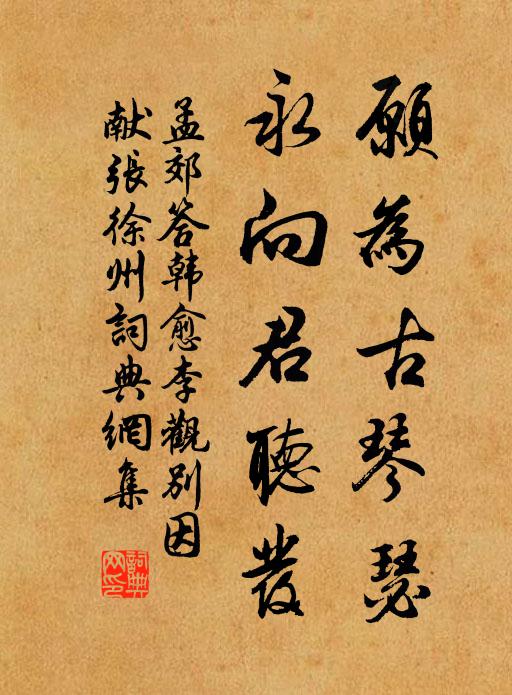 願為古琴瑟
永向君聽發
孟郊答韓愈李觀別因
献張徐州詞典網集
詞典
网印